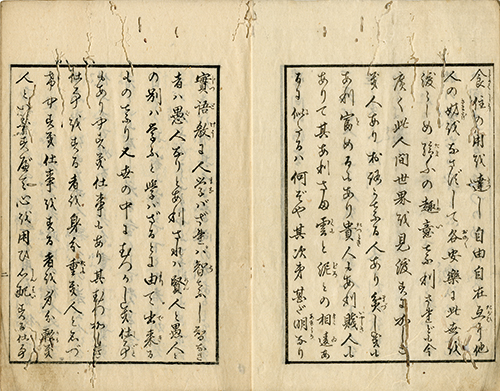 食住の用を達し自由自在互に他
人の妨をなさずして各安樂に此世を
渡らしめ給ふの趣意なりされども今
廣く此人間世界を見渡すにかしこ
き人ありおろかなる人あり貧しきも
あり富めるもあり貴人もあり賤人も
ありて其ありさま雲と泥との相違あ
るに似たるハ何ぞや其次第甚だ明なり
實語教に人学バざれバ智なし智なき
者ハ愚人なりとありされバ賢人と愚人と
の別ハ学ぶと学バざるとに由て出来る
ものなり又世の中にむつかしき仕事
もありやすき仕事もあり其むつかしき
仕事をする者を身分重き人と名づ
けやすき仕事をする者を身分輕き
人と云ふ都て心を用ひ心配する仕事